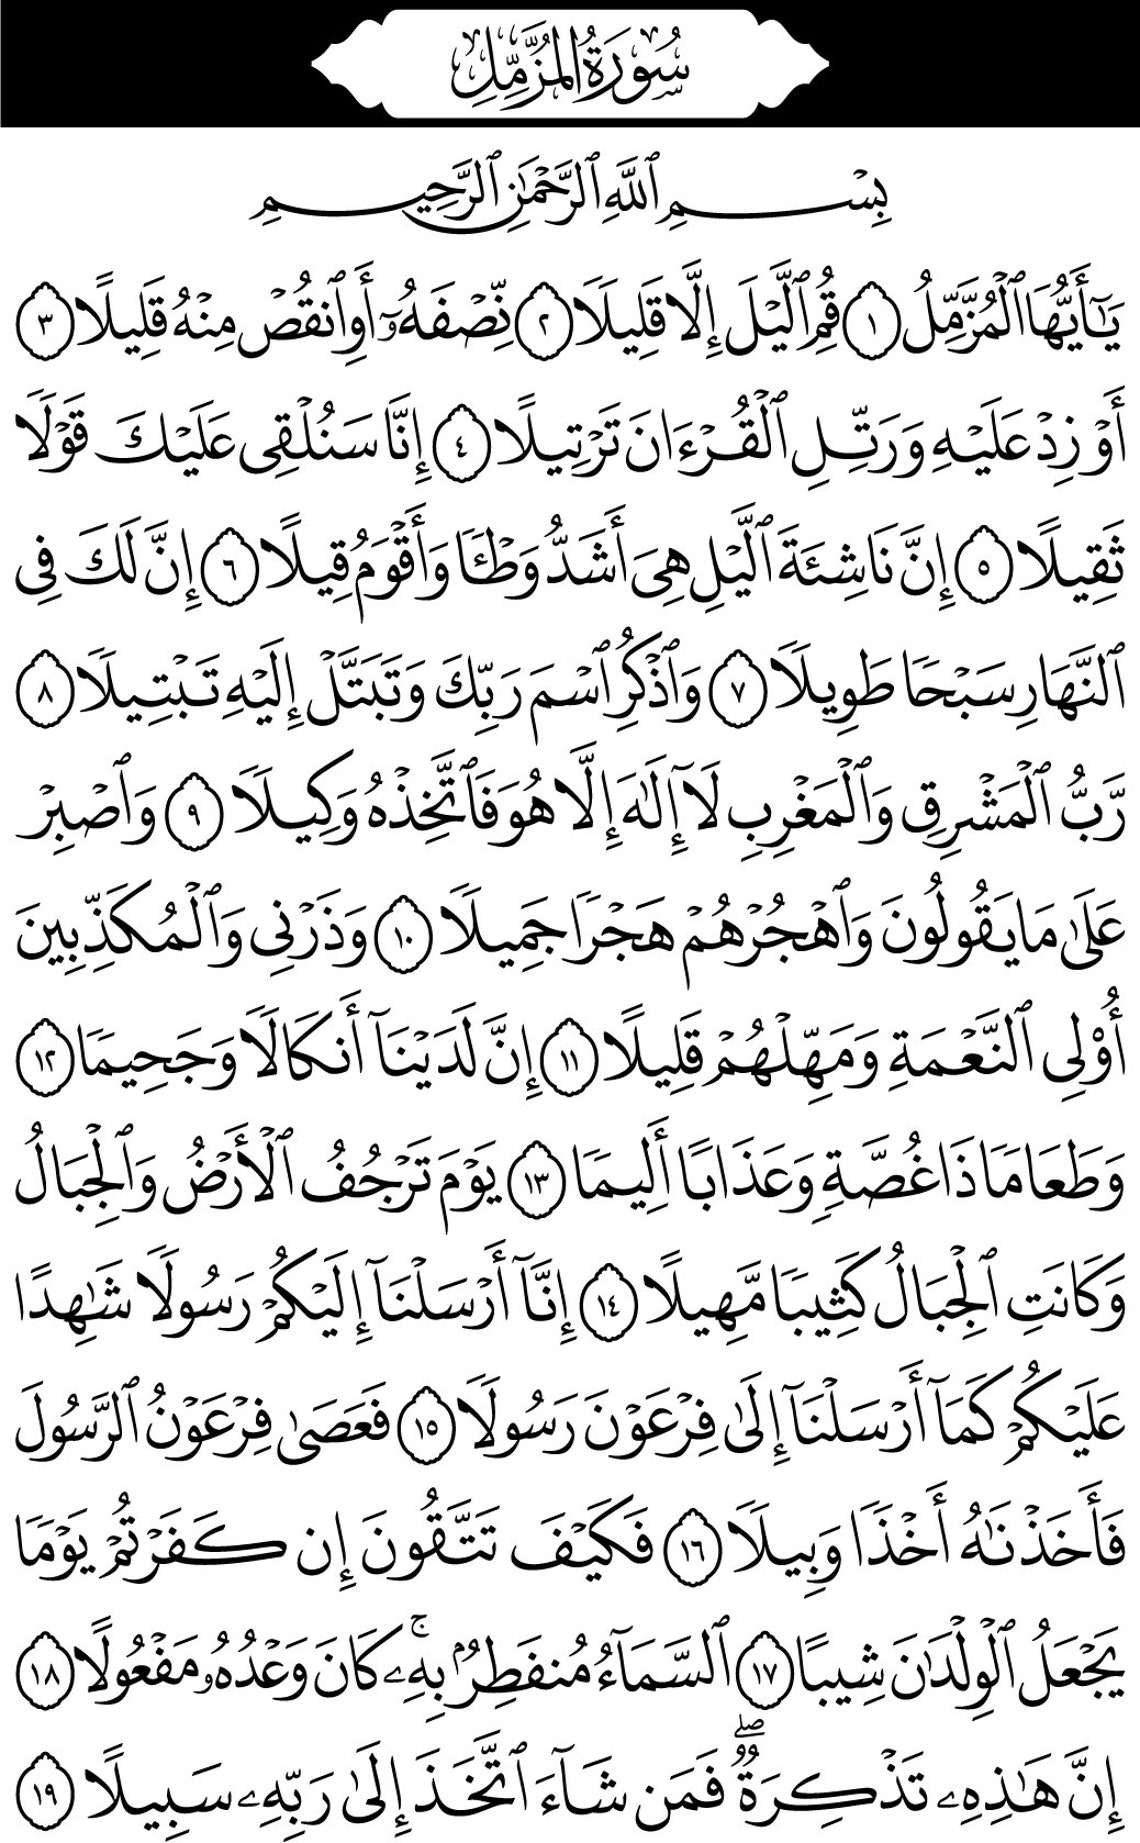 سُورَةُ المُزَّمِّلِ
بِسۡمِ ٱللَّهِ ٱلرَّحۡمَٰنِ ٱلرَّحِيمِ
يَٰٓأَيُّهَا ٱلۡمُزَّمِّلُ ١ قُمِ ٱلَّيۡلَ إِلَّا قَلِيلٗا ٢ نِّصۡفَهُۥٓ أَوِ ٱنقُصۡ مِنۡهُ قَلِيلًا ٣
أَوۡ زِدۡ عَلَيۡهِ وَرَتِّلِ ٱلۡقُرۡءَانَ تَرۡتِيلًا ٤ إِنَّا سَنُلۡقِي عَلَيۡكَ قَوۡلٗا
ثَقِيلًا ٥ إِنَّ نَاشِئَةَ ٱلَّيۡلِ هِيَ أَشَدُّ وَطۡـٔٗا وَأَقۡوَمُ قِيلًا ٦ إِنَّ لَكَ فِي
ٱلنَّهَارِ سَبۡحٗا طَوِيلٗا ٧ وَٱذۡكُرِ ٱسۡمَ رَبِّكَ وَتَبَتَّلۡ إِلَيۡهِ تَبۡتِيلٗا ٨
رَّبُّ ٱلۡمَشۡرِقِ وَٱلۡمَغۡرِبِ لَآ إِلَٰهَ إِلَّا هُوَ فَٱتَّخِذۡهُ وَكِيلٗا ٩ وَٱصۡبِرۡ
عَلَىٰ مَا يَقُولُونَ وَٱهۡجُرۡهُمۡ هَجۡرٗا جَمِيلٗا ١٠ وَذَرۡنِي وَٱلۡمُكَذِّبِينَ
أُوْلِي ٱلنَّعۡمَةِ وَمَهِّلۡهُمۡ قَلِيلًا ١١ إِنَّ لَدَيۡنَآ أَنكَالٗا وَجَحِيمٗا ١٢
وَطَعَامٗا ذَا غُصَّةٖ وَعَذَابًا أَلِيمٗا ١٣ يَوۡمَ تَرۡجُفُ ٱلۡأَرۡضُ وَٱلۡجِبَالُ
وَكَانَتِ ٱلۡجِبَالُ كَثِيبٗا مَّهِيلًا ١٤ إِنَّآ أَرۡسَلۡنَآ إِلَيۡكُمۡ رَسُولٗا شَٰهِدًا
عَلَيۡكُمۡ كَمَآ أَرۡسَلۡنَآ إِلَىٰ فِرۡعَوۡنَ رَسُولٗا ١٥ فَعَصَىٰ فِرۡعَوۡنُ ٱلرَّسُولَ
فَأَخَذۡنَٰهُ أَخۡذٗا وَبِيلٗا ١٦ فَكَيۡفَ تَتَّقُونَ إِن كَفَرۡتُمۡ يَوۡمٗا
يَجۡعَلُ ٱلۡوِلۡدَٰنَ شِيبًا ١٧ ٱلسَّمَآءُ مُنفَطِرُۢ بِهِۦۚ كَانَ وَعۡدُهُۥ مَفۡعُولًا ١٨
إِنَّ هَٰذِهِۦ تَذۡكِرَةٞۖ فَمَن شَآءَ ٱتَّخَذَ إِلَىٰ رَبِّهِۦ سَبِيلًا ١٩